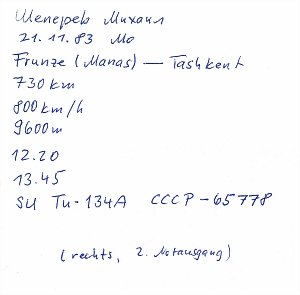 Шепергев Михаил
21.11.83 Mo
Frunze (Manas) — Tashkent
730 km
800 km/h
9600 m
12.20
13.45
SU Tu-134A CCCP-65778
(rechts, 2. Notausgang)